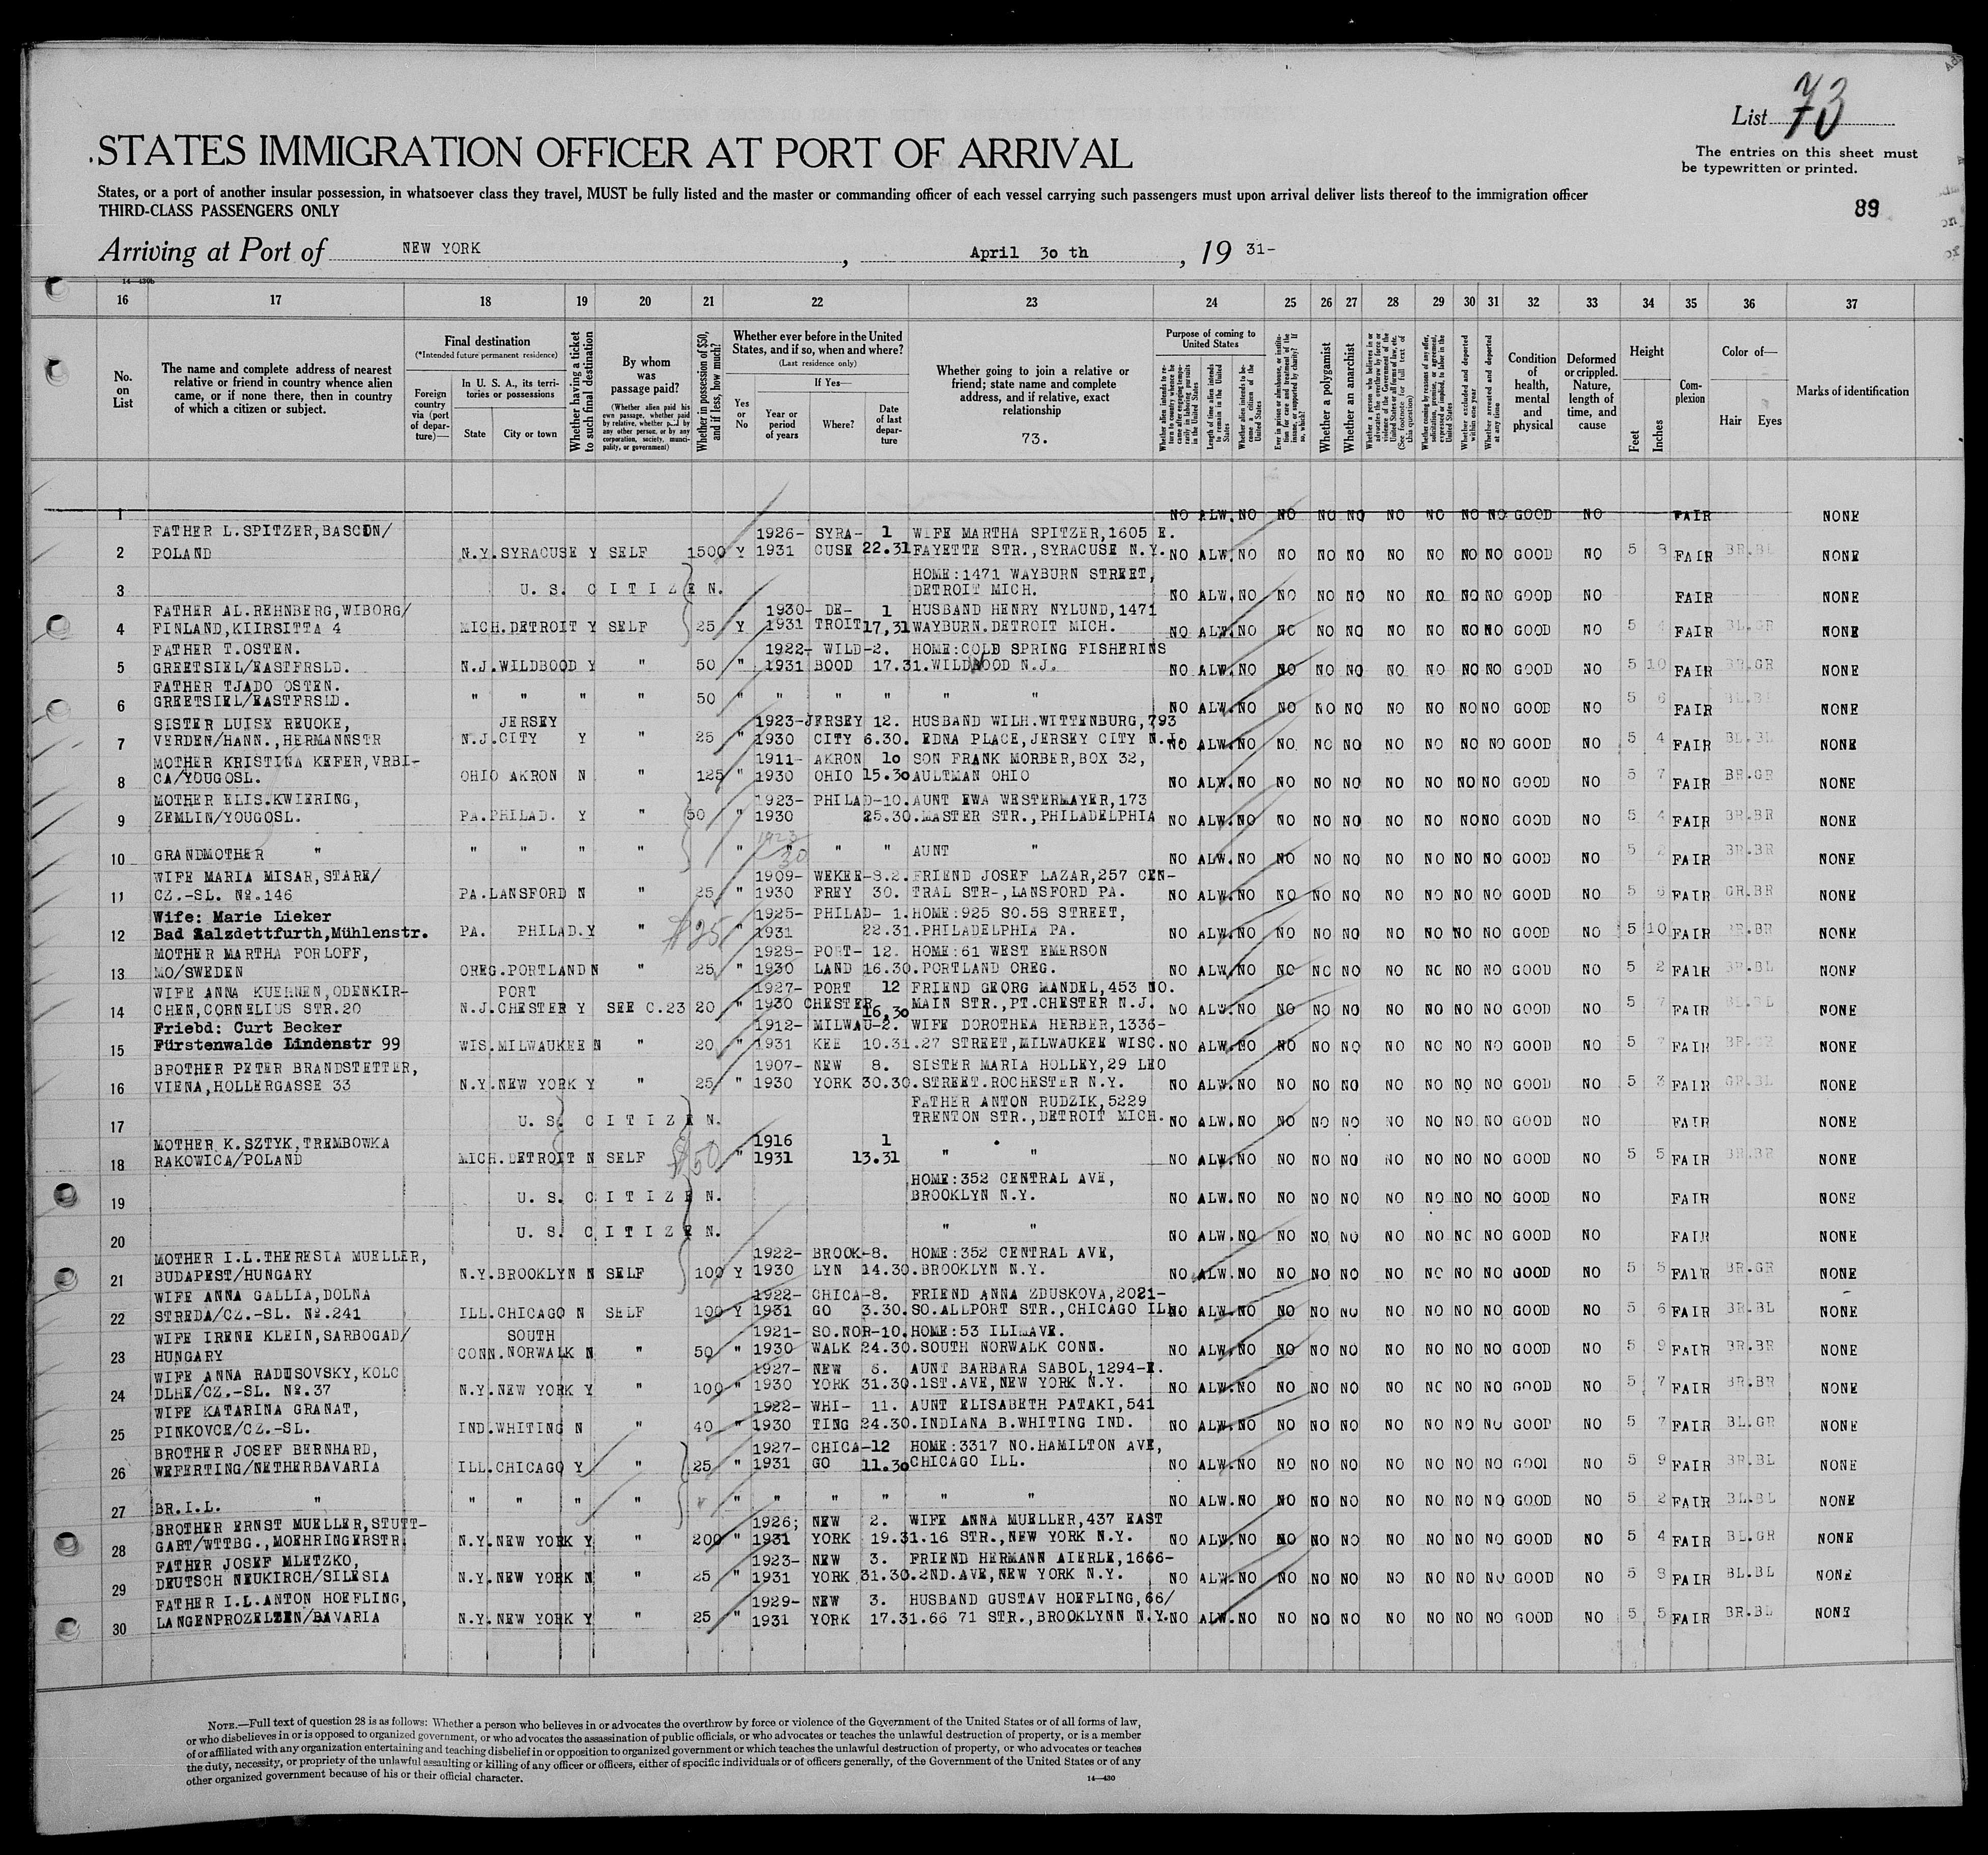 List 73
The entries on this sheet must
be typewritten or printed.
89
STATES IMMIGRATION OFFICER AT PORT OF ARRIVAL
States, or a port of another insular possession, in whatsoever class they travel, MUST be fully listed and the master or commanding officer of each vessel carrying such passengers must upon arrival deliver lists thereof to the immigration officer
THIRD-CLASS PASSENGERS ONLY
Arriving at Port of NEW YORK, April 30 th, 19 31-
14—430b
16 17 18 19 20 21 22 23 24 25 26 27 28 29 30 31 32 33 34 35 36 37
No. on List
The name and complete address of nearest relative or friend in country whence alien came, or if none there, then in country of which a citizen or subject.
Final destination
(*Intended future permanent residence)
Foreign country via (port of departure)—
In U. S. A., its territories or possessions
State City or town
Whether having a ticket to such final destination
By whom was passage paid?
(Whether alien paid his own passage, whether paid by relative, whether paid by any other person, or by any corporation, society, municipality, or government)
Whether in possession of $50, and if less, how much?
Whether ever before in the United States, and if so, when and where?
(Last residence only)
Yes or No
If Yes—
Year or period of years
Where?
Date of last departure
Whether going to join a relative or friend; state name and complete address, and if relative, exact relationship
73.
Purpose of coming to United States
Length of time alien intends to remain in the United States
Whether alien intends to become a citizen of the United States
Whether a polygamist
Whether an anarchist
Whether excluded and deported within one year
Whether arrested and deported at any time
Condition of health, mental and physical
Deformed or crippled. Nature, length of time, and cause
Height
Feet Inches
Complexion
Color of—
Hair Eyes
Marks of identification
1 NO ALW. NO NO NO NO NO NO NO NO GOOD NO FAIR NONE
FATHER L.SPITZER, 1926- SYRA- 1 WIFE MARTHA SPITZER,1605 E.
2 POLAND N.Y.SYRACUSE Y SELF 1500 Y 1931 CUSE 22.31 FAYETTE STR.,SYRACUSE N.Y. NO ALW. NO NO NO NO NO NO NO NO GOOD NO 5 FAIR NONE
HOME:1471 WAYBURN STREET,
3 U. S. C I T I Z E N. DETROIT MICH. NO ALW. NO NO NO NO NO NO NO NO GOOD NO FAIR NONE
FATHER AL.REHNBERG,WIBORG/ 1930- DE- 1 HUSBAND HENRY NYLUND,1471
4 FINLAND,KIIRSITTA 4 MICH.DETROIT Y SELF 25 Y 1931 TROIT 17,31 WAYBURN.DETROIT MICH. NO ALW. NO NO NO NO NO NO NO NO GOOD NO 5 4 FAIR BL.GR NONE
FATHER T.OSTEN. 1922- WILD- 2. HOME:COLD SPRING FISHERINS
5 GREETSIEL/EASTFRSLD. N.J.WILDBOOD Y " 50 " 1931 BOOD 17.31.WILDWOOD N.J. NO ALW. NO NO NO NO NO NO NO NO GOOD NO 5 10 FAIR BR.GR NONE
FATHER TJADO OSTEN.
6 GREETSIEL/EASTFRSLD. " " " " 50 " " " " " " NO ALW. NO NO NO NO NO NO NO NO GOOD NO 5 6 FAIR NONE
SISTER LUISE REUOKE, JERSEY 1923- JERSEY 12. HUSBAND WILH.WITTENBURG,793
7 VERDEN/HANN.,HERMANNSTR N.J.CITY Y " 25 " 1930 CITY 6.30. EDNA PLACE,JERSEY CITY N.J. NO ALW. NO NO NO NO NO NO NO NO GOOD NO 5 4 FAIR BL.BL NONE
MOTHER KRISTINA KEFER,VRBI- 1911- AKRON 10 SON FRANK MORBER,BOX 32,
8 CA/YOUGOSL. OHIO AKRON N " 125 " 1930 OHIO 15.30 AULTMAN OHIO NO ALW. NO NO NO NO NO NO NO NO GOOD NO 5 7 FAIR BR.GR NONE
MOTHER ELIS.KWIERING, 1923- PHILAD-10. AUNT EWA WESTERMAYER,173
9 ZEMLIN/YOUGOSL. PA.PHILAD. Y " 50 " 1930 25.30. MASTER STR.,PHILADELPHIA NO ALW. NO NO NO NO NO NO NO NO GOOD NO 5 4 FAIR BR.BR NONE
1923
10 GRANDMOTHER " " " " " " " 30 " " AUNT " NO ALW. NO NO NO NO NO NO NO NO GOOD NO 5 2 FAIR BR.BR NONE
WIFE MARIA MISAR,STARE/ 1909- WEKEE-8.2. FRIEND JOSEF LAZAR,257 CEN-
11 CZ.-SL. No.146 PA.LANSFORD N " 25 " 1930 FREY 30. TRAL STR-,LANSFORD PA. NO ALW. NO NO NO NO NO NO NO NO GOOD NO 5 6 FAIR GR.BR NONE
Wife: Marie Lieker 1925- PHILAD- 1. HOME:925 SO.58 STREET,
12 Bad Salzdettfurth,Mühlenstr. PA. PHILAD.Y " $25 " 1931 22.31. PHILADELPHIA PA. NO ALW. NO NO NO NO NO NO NO NO GOOD NO 5 10 FAIR BR.BR NONE
MOTHER MARTHA FORLOFF, 1928- PORT- 12. HOME:61 WEST EMERSON
13 MO/SWEDEN OREG.PORTLAND N " 25 " 1930 LAND 16.30. PORTLAND OREG. NO ALW. NO NO NO NO NO NO NO NO GOOD NO 5 2 FAIR BR.BL NONE
WIFE ANNA KUEHNEN,ODENKIR- PORT 1927- PORT 12 FRIEND GEORG MANDEL,453 NO.
14 CHEN,CORNELIUS STR.20 N.J.CHESTER Y SEE C.23 20 " 1930 CHESTER 16,30 MAIN STR.,PT.CHESTER N.J. NO ALW. NO NO NO NO NO NO NO NO GOOD NO 5 7 FAIR BL.BL NONE
Friebd: Curt Becker 1912- MILWAU-2. WIFE DOROTHEA HERBER,1336-
15 Fürstenwalde Lindenstr 99 WIS.MILWAUKEE N " 20 " 1931 KEE 10.31. 27 STREET,MILWAUKEE WISC. NO ALW. NO NO NO NO NO NO NO NO GOOD NO 5 7 FAIR NONE
BROTHER PETER BRANDSTETTER, 1907- NEW 8. SISTER MARIA HOLLEY,29 LEO
16 VIENA,HOLLERGASSE 33 N.Y.NEW YORK Y " 25 " 1930 YORK 30.30. STREET.ROCHESTER N.Y. NO ALW. NO NO NO NO NO NO NO NO GOOD NO 5 3 FAIR GR.BL NONE
FATHER ANTON RUDZIK,5229
17 U. S. C I T I Z E N. TRENTON STR.,DETROIT MICH. NO ALW. NO NO NO NO NO NO NO NO GOOD NO FAIR NONE
MOTHER K.SZTYK,TREMBOWKA 1916 1
18 RAKOWICA/POLAND MICH.DETROIT N SELF $50 " 1931 13.31 " " NO ALW. NO NO NO NO NO NO NO NO GOOD NO 5 5 FAIR BR.BR NONE
HOME:352 CENTRAL AVE,
19 U. S. C I T I Z E N. BROOKLYN N.Y. NO ALW. NO NO NO NO NO NO NO NO GOOD NO FAIR NONE
20 U. S. C I T I Z E N. " " NO ALW. NO NO NO NO NO NO NO NO GOOD NO FAIR NONE
MOTHER I.L.THERESIA MUELLER, 1922- BROOK-8. HOME:352 CENTRAL AVE,
21 BUDAPEST/HUNGARY N.Y.BROOKLYN N SELF 100 Y 1930 LYN 14.30. BROOKLYN N.Y. NO ALW. NO NO NO NO NO NO NO NO GOOD NO 5 5 FAIR BR.GR NONE
WIFE ANNA GALLIA,DOLNA 1922- CHICA-8. FRIEND ANNA ZDUSKOVA,2021-
22 STREDA/CZ.-SL. No.241 ILL.CHICAGO N SELF 100 Y 1931 GO 3.30. SO.ALLPORT STR.,CHICAGO ILL NO ALW. NO NO NO NO NO NO NO NO GOOD NO 5 6 FAIR BR.BL NONE
WIFE IRENE KLEIN,SARBOGAD/ SOUTH 1921- SO.NOR-10. HOME:53 AVE.
23 HUNGARY CONN.NORWALK N " 50 " 1930 WALK 24.30. SOUTH NORWALK CONN. NO ALW. NO NO NO NO NO NO NO NO GOOD NO 5 9 FAIR BR.BR NONE
WIFE ANNA RADUSOVSKY,KOLC 1927- NEW AUNT BARBARA SABOL,1294-E.
24 DLHE/CZ.-SL. No.37 N.Y.NEW YORK Y " 100 " 1930 YORK 31.30. 1ST.AVE,NEW YORK N.Y. NO ALW. NO NO NO NO NO NO NO NO GOOD NO 5 7 FAIR BR.BR NONE
WIFE KATARINA GRANAT, 1922- WHI- 11. AUNT ELISABETH PATAKI,541
25 PINKOVCE/CZ.-SL. IND.WHITING N " 40 " 1930 TING 24.30. INDIANA B.WHITING IND. NO ALW. NO NO NO NO NO NO NO NO GOOD NO 5 7 FAIR BL.GR NONE
BROTHER JOSEF BERNHARD, 1927- CHICA-12 HOME:3317 NO.HAMILTON AVE,
26 WEFERTING/NETHERBAVARIA ILL.CHICAGO Y " 25 " 1931 GO 11.30 CHICAGO ILL. NO ALW. NO NO NO NO NO NO NO NO GOOD NO 5 9 FAIR BR.BL NONE
27 BR.I.L. " " " " " " " " " " " " NO ALW. NO NO NO NO NO NO NO NO GOOD NO 5 2 FAIR BL.BL NONE
BROTHER ERNST MUELLER,STUTT- 1926; NEW 2. WIFE ANNA MUELLER,437 EAST
28 GART/WTTBG.,MOEHRINGERSTR. N.Y.NEW YORK Y " 200 " 1931 YORK 19.31. 16 STR.,NEW YORK N.Y. NO ALW. NO NO NO NO NO NO NO NO GOOD NO 5 4 FAIR BL.GR NONE
FATHER JOSEF MLETZKO, 1923- NEW 3. FRIEND HERMANN AIERLE,1666-
29 DEUTSCH NEUKIRCH/SILESIA N.Y.NEW YORK N " 25 " 1931 YORK 31.30. 2ND.AVE,NEW YORK N.Y. NO ALW. NO NO NO NO NO NO NO NO GOOD NO 5 8 FAIR BL.BL NONE
FATHER I.L.ANTON HOEFLING, 1929- NEW 3. HUSBAND GUSTAV HOEFLING,66/
30 LANGENPROZELTEN/BAVARIA N.Y.NEW YORK Y " 25 " 1931 YORK 17.31. 66 71 STR.,BROOKLYNN N.Y. NO ALW. NO NO NO NO NO NO NO NO GOOD NO 5 5 FAIR BR.BL NONE
NOTE.—Full text of question 28 is as follows: Whether a person who believes in or advocates the overthrow by force or violence of the Government of the United States or of all forms of law,
or who disbelieves in or is opposed to organized government, or who advocates the assassination of public officials, or who advocates or teaches the unlawful destruction of property, or is a member
of or affiliated with any organization entertaining and teaching disbelief in or opposition to organized government or which teaches the unlawful destruction of property, or who advocates or teaches
the duty, necessity, or propriety of the unlawful assaulting or killing of any officer or officers, either of specific individuals or of officers generally, of the Government of the United States or of any
other organized government because of his or their official character.
14—430